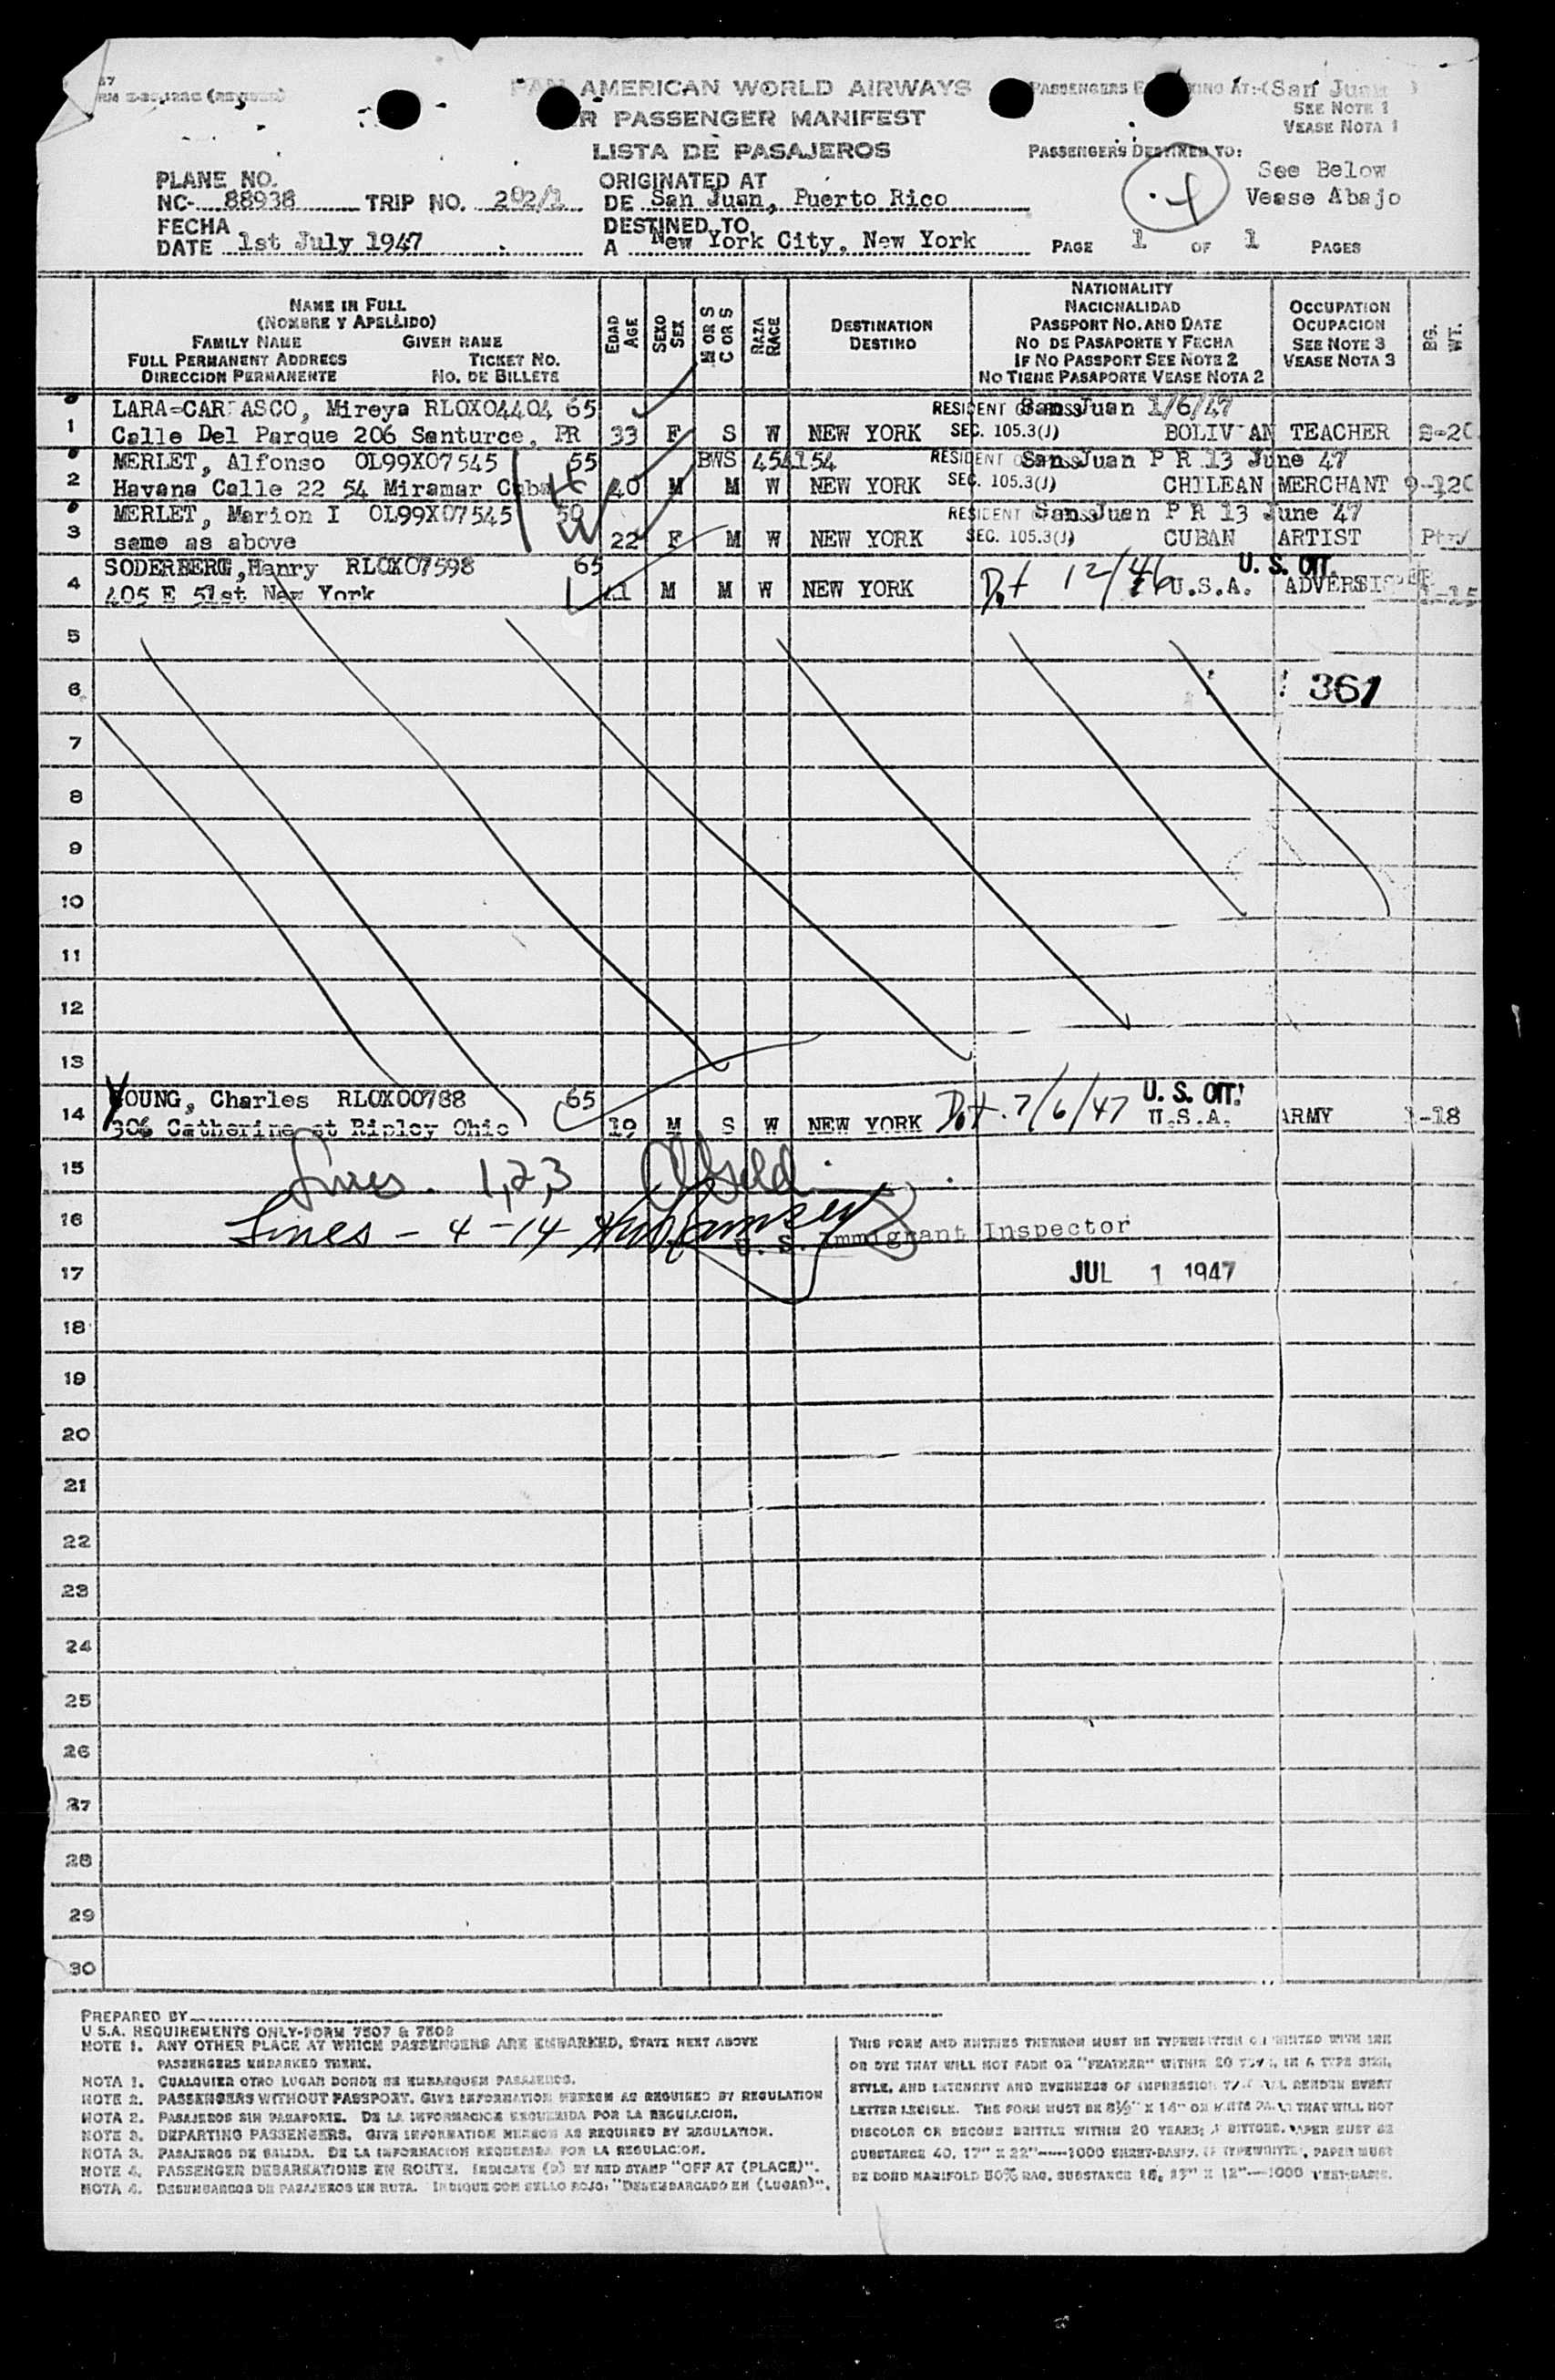 PAN AMERICAN WORLD AIRWAYS
PASSENGER MANIFEST
LISTA DE PASAJEROS
PASSENGERS AT:-(San Juan )
SEE NOTE 1
VEASE NOTA 1
PASSENGERS DESTINED TO:
See Below
Vease Abajo
PLANE NO.
NC- 88938 TRIP NO. 292/1
ORIGINATED AT
DE San Juan, Puerto Rico
FECHA
DATE 1st July 1947
DESTINED TO
A New York City, New York
PAGE 1 OF 1 PAGES
NAME IN FULL
(NOMBRE Y APELLIDO)
FAMILY NAME GIVEN NAME
FULL PERMANENT ADDRESS TICKET NO.
DIRECCION PERMANENTE NO. DE BILLETE
EDAD
AGE
SEXO
SEX
M OR S
C OR S
RAZA
RACE
DESTINATION
DESTINO
NATIONALITY
NACIONALIDAD
PASSPORT NO. AND DATE
NO DE PASAPORTE Y FECHA
IF NO PASSPORT SEE NOTE 2
NO TIENE PASAPORTE VEASE NOTA 2
OCCUPATION
OCUPACION
SEE NOTE 3
VEASE NOTA 3
BG.
WT.
LARA=CAR ASCO, Mireya RLOX04404 65 RESIDENT San Juan 1/6/47
1 Calle Del Parque 206 Santurce, PR 33 F S W NEW YORK SEC. 105.3(J) BOLIV AN TEACHER
MERLET, Alfonso OL99X07545 55 BWS 454154 RESIDENT San Juan P R 13 June 47
2 Havana Calle 22 54 Miramar Cuba 40 M M W NEW YORK SEC. 105.3(J) CHILEAN MERCHANT
MERLET, Marion I OL99X07545 50 RESIDENT San Juan P R 13 June 47
3 same as above 22 F M W NEW YORK SEC. 105.3(J) CUBAN ARTIST
SODERBERG, Henry RLOX07598 65 U. S. CIT.
4 405 E 51st New York 41 M M W NEW YORK 12/46 U.S.A.
5
6 361
7
8
9
10
11
12
13
YOUNG, Charles RLOX00788 65 U. S. CIT.
14 306 Catherine st Ripley Ohio 19 M S W NEW YORK 7/6/47 U.S.A. ARMY 1-18
15 Lines 1,2,3
16 Lines - 4 - 14 U. S. Immigrant Inspector
17 JUL 1 1947
18
19
20
21
22
23
24
25
26
27
28
29
30
PREPARED BY
U.S.A. REQUIREMENTS ONLY-FORM 7507 & 7509
NOTE 1. ANY OTHER PLACE AT WHICH PASSENGERS ARE EMBARKED, STATE NEXT ABOVE
PASSENGERS EMBARKED THERE.
NOTA 1. CUALQUIER OTRO LUGAR DONDE SE EMBARQUEN PASAJEROS.
NOTE 2. PASSENGERS WITHOUT PASSPORT. GIVE INFORMATION HEREON AS REQUIRED BY REGULATION
NOTA 2. PASAJEROS SIN PASAPORTE. DE LA INFORMACION REQUERIDA POR LA REGULACION.
NOTE 3. DEPARTING PASSENGERS. GIVE INFORMATION HEREON AS REQUIRED BY REGULATION.
NOTA 3. PASAJEROS DE SALIDA. DE LA INFORMACION REQUERIDA POR LA REGULACION.
NOTE 4. PASSENGER DEBARKATIONS EN ROUTE. INDICATE (D) BY RED STAMP "OFF AT (PLACE)".
NOTA 4. DESEMBARCOS DE PASAJEROS EN RUTA. INDIQUE CON SELLO ROJO: "DESEMBARCADO EN (LUGAR)".
THIS FORM AND ENTRIES THEREON MUST BE TYPEWRITTEN OR PRINTED WITH INK
OR DYE THAT WILL NOT FADE OR "FEATHER" WITHIN 20 IN A TYPE SIZE,
STYLE, AND INTENSITY AND EVENNESS OF IMPRESSION RENDER EVERY
LETTER LEGIBLE. THE FORM MUST BE 8½" X 14" ON WHITE THAT WILL NOT
DISCOLOR OR BECOME BRITTLE WITHIN 20 YEARS; PAPER MUST BE
SUBSTANCE 40, 17" X 22"—1000 SHEET-BASIS. IF TYPEWRITTEN, PAPER MUST
BE BOND MANIFOLD 50% RAG, SUBSTANCE